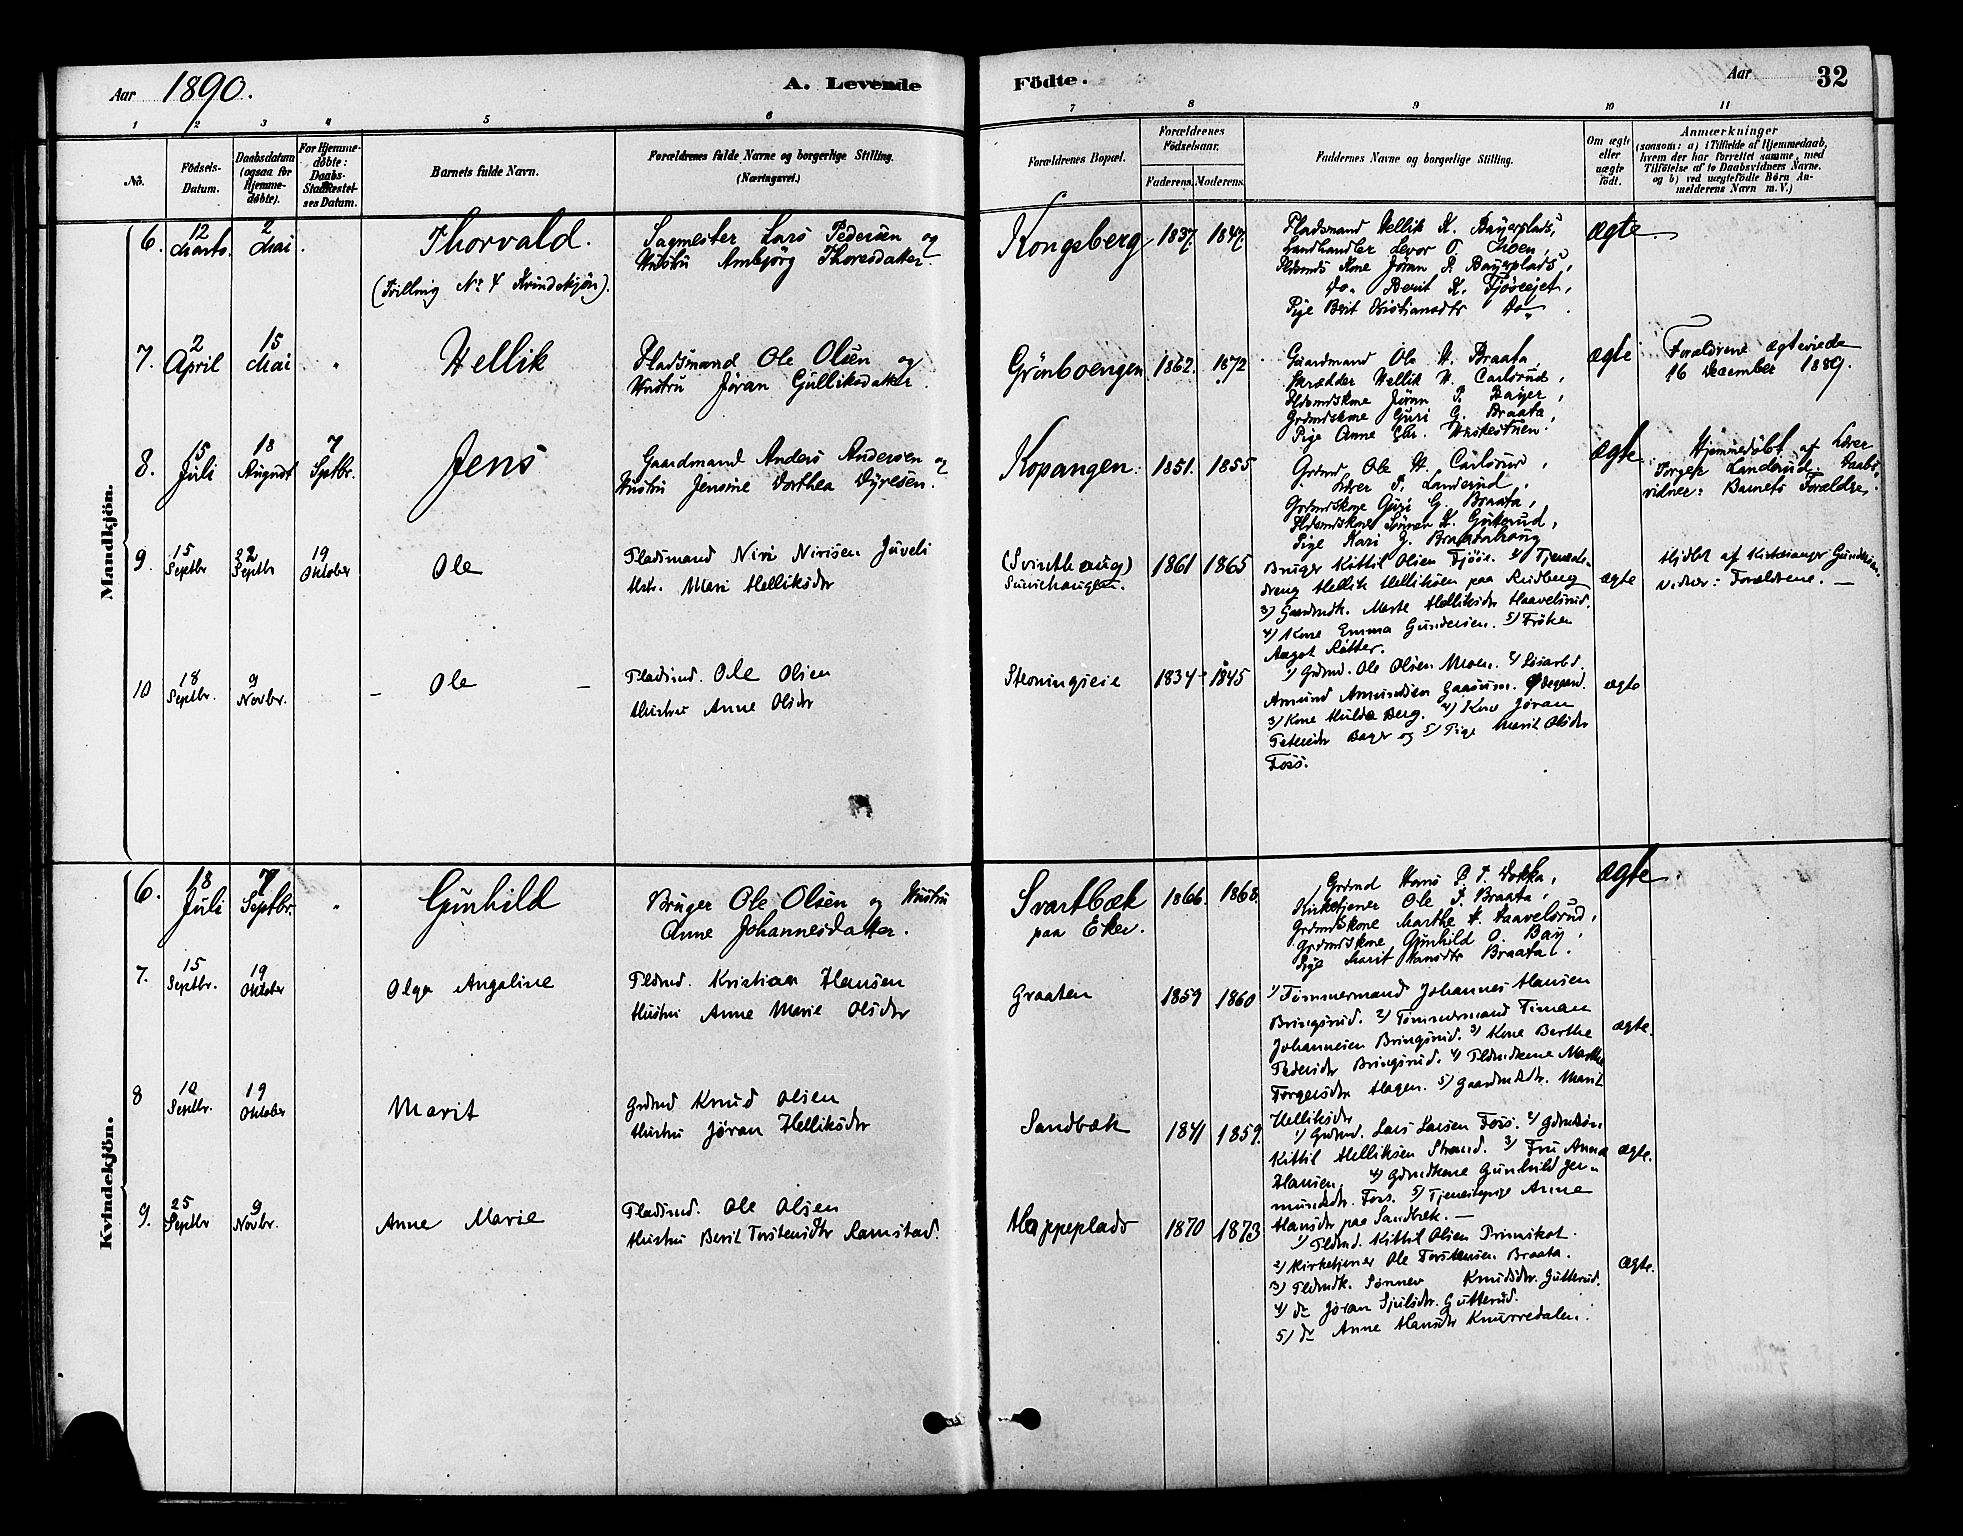 Aar 1890.
A. Levende
Födte.
Aar
32
1 2 3 4 5 6 7 8 9 10 11
No.
Födsels-
Datum.
Daabsdatum
(ogsaa for
Hjemme-
døbte).
For Hjemme-
døbte:
Daabs-
Stadfæstel-
ses Datum.
Barnets fulde Navn.
Forældrenes fulde Navne og borgerlige Stilling.
(Næringsvei.)
Forældrenes Bopæl.
Forældrenes
Födselsaar.
Faderens. Moderens.
Faddernes Navne og borgerlige Stilling.
Om ægte
eller
uægte
født.
Anmærkninger
(saasom: a) i Tilfælde af Hjemmedaab,
hvem der har forrettet samme, med
Tilføielse af to Daabsvidners Navne,
og b) ved uægtefødte Børn An-
melderens Navn m. V.)
Mandkjön.
6.
12
Marts.
2
Mai
Thorvald.
(Trilling No 4 Kvindekjön).
Sagmester Lars Pedersen og
Hustru Ambjørg Thoresdatter.
Kongsberg
1837 1847
Pladsmand Hellik K. Bayerplads,
Landhandler Levor T. Moen,
Pldsmds Kone Jøran P. Bayerplads,
Do. Berit K.
Pige Berit Kristiansdtr Do
ægte
7.
2
April
15
Mai
"
Hellik
Pladsmand Ole Olsen og
Hustru Jøran Gulliksdatter.
Grönboengen
1862. 1872
Gaardmand Ole H. Braata
Skrædder Hellik H. Carlsrud,
Pldsmdskone Jøran P. Bayer,
Grdmdskone Guri G. Braata,
Pige Anne Chr.
ægte
Forældrene ægteviede
16 December 1889.
8.
15
Juli
18
August
7
Septbr.
Jens
Gaardmand Anders Andersen og
Hustru Jensine Dorthea Dyresen.
Kopangen.
1851. 1855
Grdmd Ole H. Carlsrud,
Lærer T. Landerud,
Grdmdskone Guri G. Braata,
Pldsmdskone Sønnev K. Guterud,
Pige Kari J. Braatahaug
ægte
Hjemmedøbt af Lærer
Torger Landerud. Daabs-
vidner: Barnets Forældre.
9.
15
Septbr
22
Septbr
19
Oktober
Ole
Pladsmand Niri Nirisen Juveli
Hstr. Mari Helliksdtr
(Svinthaug)
Svinehaugen.
1861 1865
Bruger Kittil Olsen Fjøse. 2) Tjeneste-
dreng Hellik Helliksen paa Rudberg
3) Gaardmdk. Marte Helliksdtr Haavelsrud.
4) Kone Emma Gundersen. 5) Frøken
Aagot Røtter.
ægte
Hjdbt af Kirkesanger Gundersen.
Vidner: Forældrene. —
10
18
Septbr.
9
Novbr.
– Ole –
Pladsmd. Ole Olsen
Hustru Anne Olsdtr
Steoningseie
1834 1845
1) Grdmd. Ole Olsen Moen. 2) Løsarbd.
Amund Amundsen Gaasum. Ødegaard.
3) Kone Hulda Berg. 4) Kone Jøran
Petersdtr Bayer og 5) Pige Marit Olsdtr
Foss.
ægte
Kvindekjön.
6.
18
Juli
7
Septbr.
"
Gunhild
Bruger Ole Olsen og Hustru
Anne Johannesdatter.
Svartbæk
paa Eker.
1866. 1868.
Grdmd Hans P. T. Dokka,
Kirketjener Ole T. Braata,
Grdmdskone Marthe H. Haavelsrud,
Grdmdskone Gunhild O. Bay,
Pige Marit Hansdtr Braata.
ægte
7.
15
Septbr.
19
Oktober
Olga Angaline
Pldmd. Kristian Hansen
Hustru Anne Marie Olsdtr
Graaten
1859 1860
1) Tømmermand Johannes Hansen
Bringsrud. 2) Tømmermand Timan
Johannesen Bringsrud. 3) Kone Berthe
Pedersdtr Bringsrud. 4) Pldmdkone Marthe
Torgersdtr Hagen. 5) Gaardmdsdtr. Marit
Helliksdtr
ægte.
8
10
Septbr.
19
Oktober
Marit
Grdmd Knud Olsen
Hustru Jøran Helliksdtr
Sandbæk
1841 1859.
1) Grdmd. Lars Larsen Foss. 2) Gdmdsøn
Kittil Helliksen Strand. 3) Fru Anna
Hansen. 4) Gdmdkone Gunhild Jer-
mundsdtr. Foss. 5) Tjenestepige Anne
Hansdtr paa Sandbæk. —
ægte.
9.
25
Septbr
9
Novbr.
Anne Marie
Pladsmd. Ole Olsen
Hustru Berit Torstensdtr Ramstad.
Happeplads
1870 1873
1) Pldmd. Kittil Olsen Primikot.
2) Kirketjener Ole Torstensen Braata.
3) Pldmdk. Sønnev Knudsdtr. Gutterud.
4) do Jøran Sjulsdtr. Gutterud.
5) do Anne Hansdtr Knurredalen.
ægte.